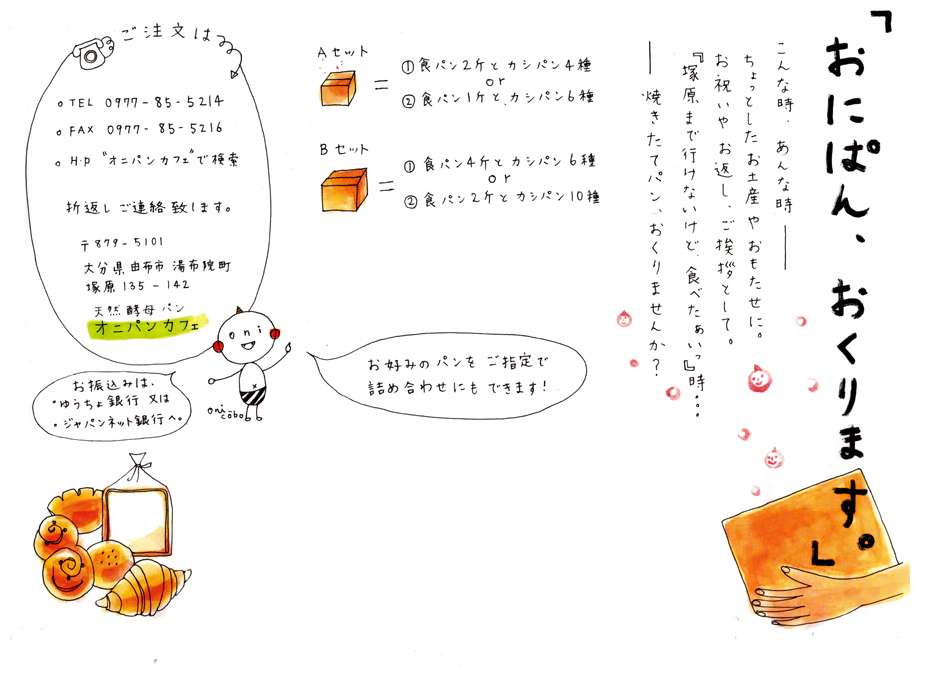 「おにぱん、おくります。」
こんな時、あんな時――
ちょっとしたお土産やおもたせに。
お祝いやお返し、ご挨拶として。
『塚原まで行けないけど、食べたぁいっ』時…
――焼きたてパン、おくりませんか?
Aセット
=
①食パン2ケとカシパン4種
or
②食パン1ケと、カシパン6種
Bセット
=
①食パン4ケとカシパン6種
or
②食パン2ケとカシパン10種
ご注文は
○TEL 0977-85-5214
○FAX 0977-85-5216
○H・P "オニパンカフェ"で検索
折返しご連絡致します。
〒879-5101
大分県由布市湯布院町
塚原135-142
天然酵母パン
オニパンカフェ
oni
oni cobo
お好みのパンをご指定で
詰め合わせにもできます!
お振込みは、
・ゆうちょ銀行 又は
・ジャパンネット銀行へ。